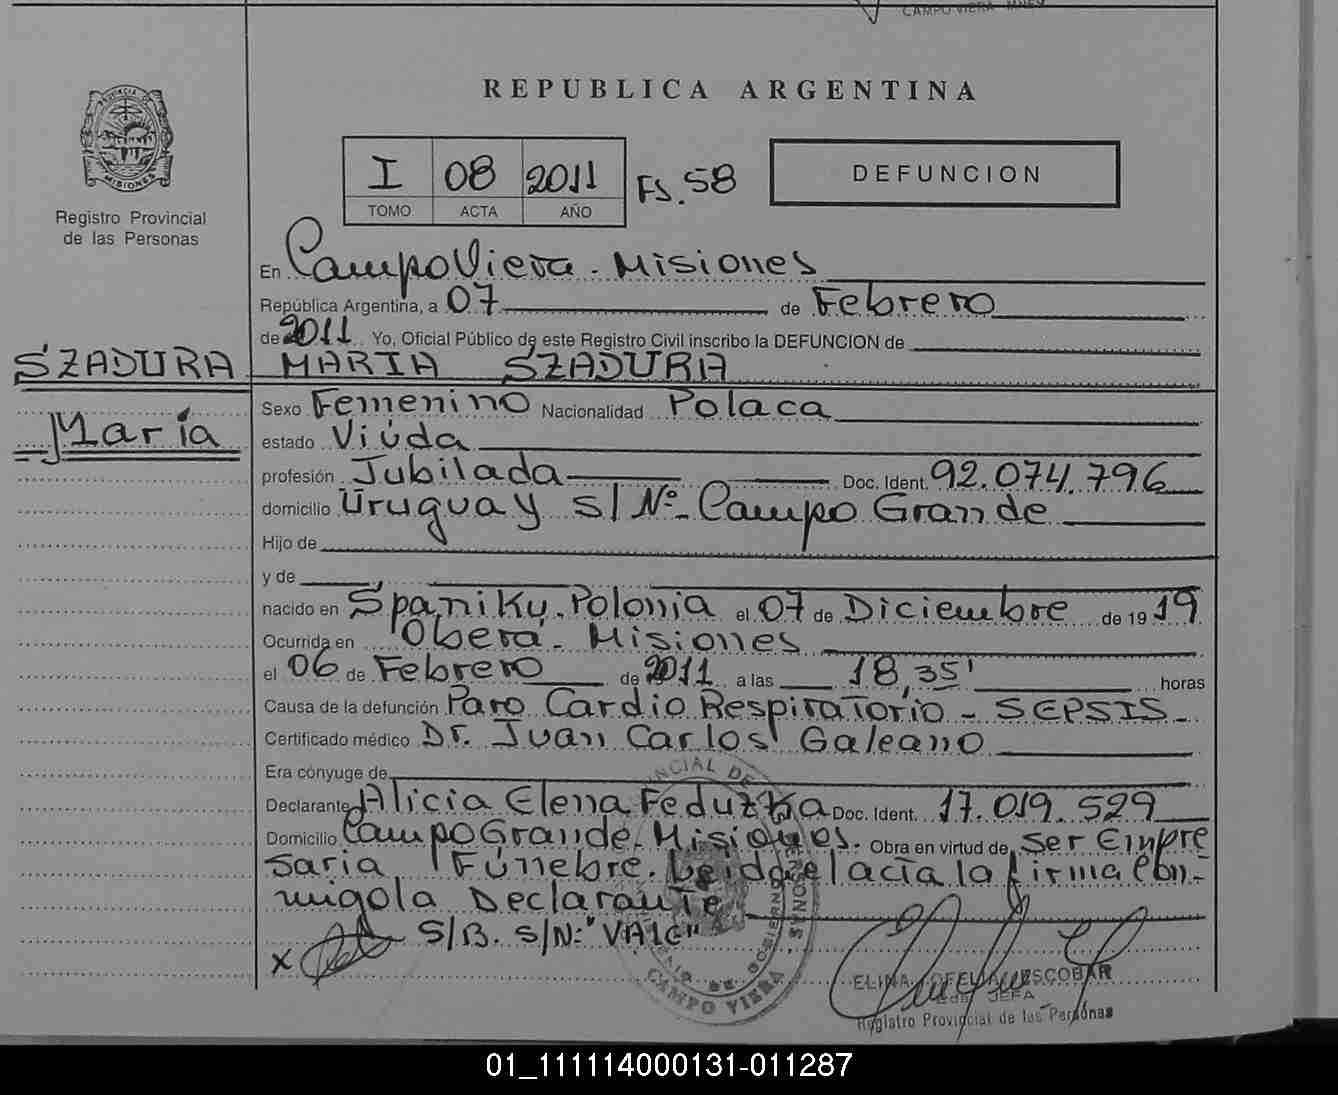 CAMPO VIERA MNES
REPUBLICA ARGENTINA
PROVINCIA D
MISIONES
Registro Provincial
de las Personas
I 08 2011 FS. 58
TOMO ACTA AÑO
DEFUNCION
En Campo Viera. Misiones
República Argentina, a 07 de Febrero
de 2011 Yo, Oficial Público de este Registro Civil inscribo la DEFUNCION de
SZADURA MARIA SZADURA
María
Sexo Femenino Nacionalidad Polaca
estado Viúda
profesión Jubilada Doc. Ident. 92.074.796
domicilio Uruguay S/Nº_ Campo Grande
Hijo de
y de
nacido en Spaniky. Polonia el 07 de Diciembre de 19 19
Ocurrida en Oberá. Misiones
el 06 de Febrero de 2011 a las 18,35' horas
Causa de la defunción Paro Cardio Respiratorio - SEPSIS -
Certificado médico Dr. Juan Carlos Galeano
Era cónyuge de
Declarante Alicia Elena Feduzka Doc. Ident. 17.019.529
Domicilio Campo Grande. Misiones. Obra en virtud de Ser Empre
saria Fúnebre. Leida el acta la firma con-
migo la Declarante
S/B. S/N: "VALE"
X
CAMPO VIERA
ELINA OFELIA ESCOBAR
JEFA
Registro Provincial de las Personas
01_111114000131-011287